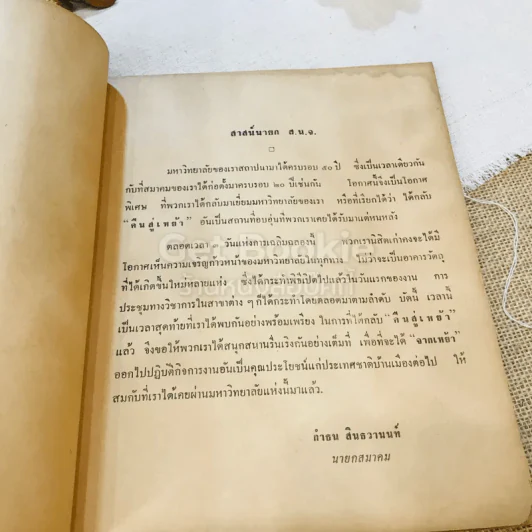 สาสน์นายก ส.น.จ.
มหาวิทยาลัยของเราสถาปนามาได้ครบรอบ ๕๐ ปี ซึ่งเป็นเวลาเดียวกัน
กับที่สมาคมของเราได้ก่อตั้งมาครบรอบ ๒๐ ปีเช่นกัน โอกาสนี้จึงเป็นโอกาส
พิเศษ ที่พวกเราได้กลับมาเยี่ยมมหาวิทยาลัยของเรา หรือที่เรียกได้ว่า ได้กลับ
"คืนสู่เหย้า" อันเป็นสถานที่อบอุ่นที่พวกเราเคยได้รับมาแต่หนหลัง
ตลอดเวลา วันแห่งการเฉลิมฉลองนี้ พวกเรานิสิตเก่าคงจะได้มี
โอกาสเห็นความเจริญก้าวหน้าของมหาวิทยาลัยในทุกทาง ไม่ว่าจะเป็นอาคารวัตถุ
ที่ได้เกิดขึ้นใหม่หลายแห่ง ซึ่งได้กระทำพิธีเปิดไปแล้วในวันแรกของงาน การ
ประชุมทางวิชาการในสาขาต่าง ๆ ก็ได้กระทำโดยตลอดมาตามลำดับ บัดนี้ เวลานี้
เป็นเวลาสุดท้ายที่เราได้พบกันอย่างพร้อมเพรียง ในการที่ได้กลับ "คืนสู่เหย้า"
แล้ว จึงขอให้พวกเราได้สนุกสนานรื่นเริงกันอย่างเต็มที่ เพื่อที่จะได้ "จากเหย้า"
ออกไปปฏิบัติกิจการงานอันเป็นคุณประโยชน์แก่ประเทศชาติบ้านเมืองต่อไป ให้
สมกับที่เราได้เคยผ่านมหาวิทยาลัยแห่งนี้มาแล้ว.
กำธน สินธวานนท์
นายกสมาคม
Get Bookie